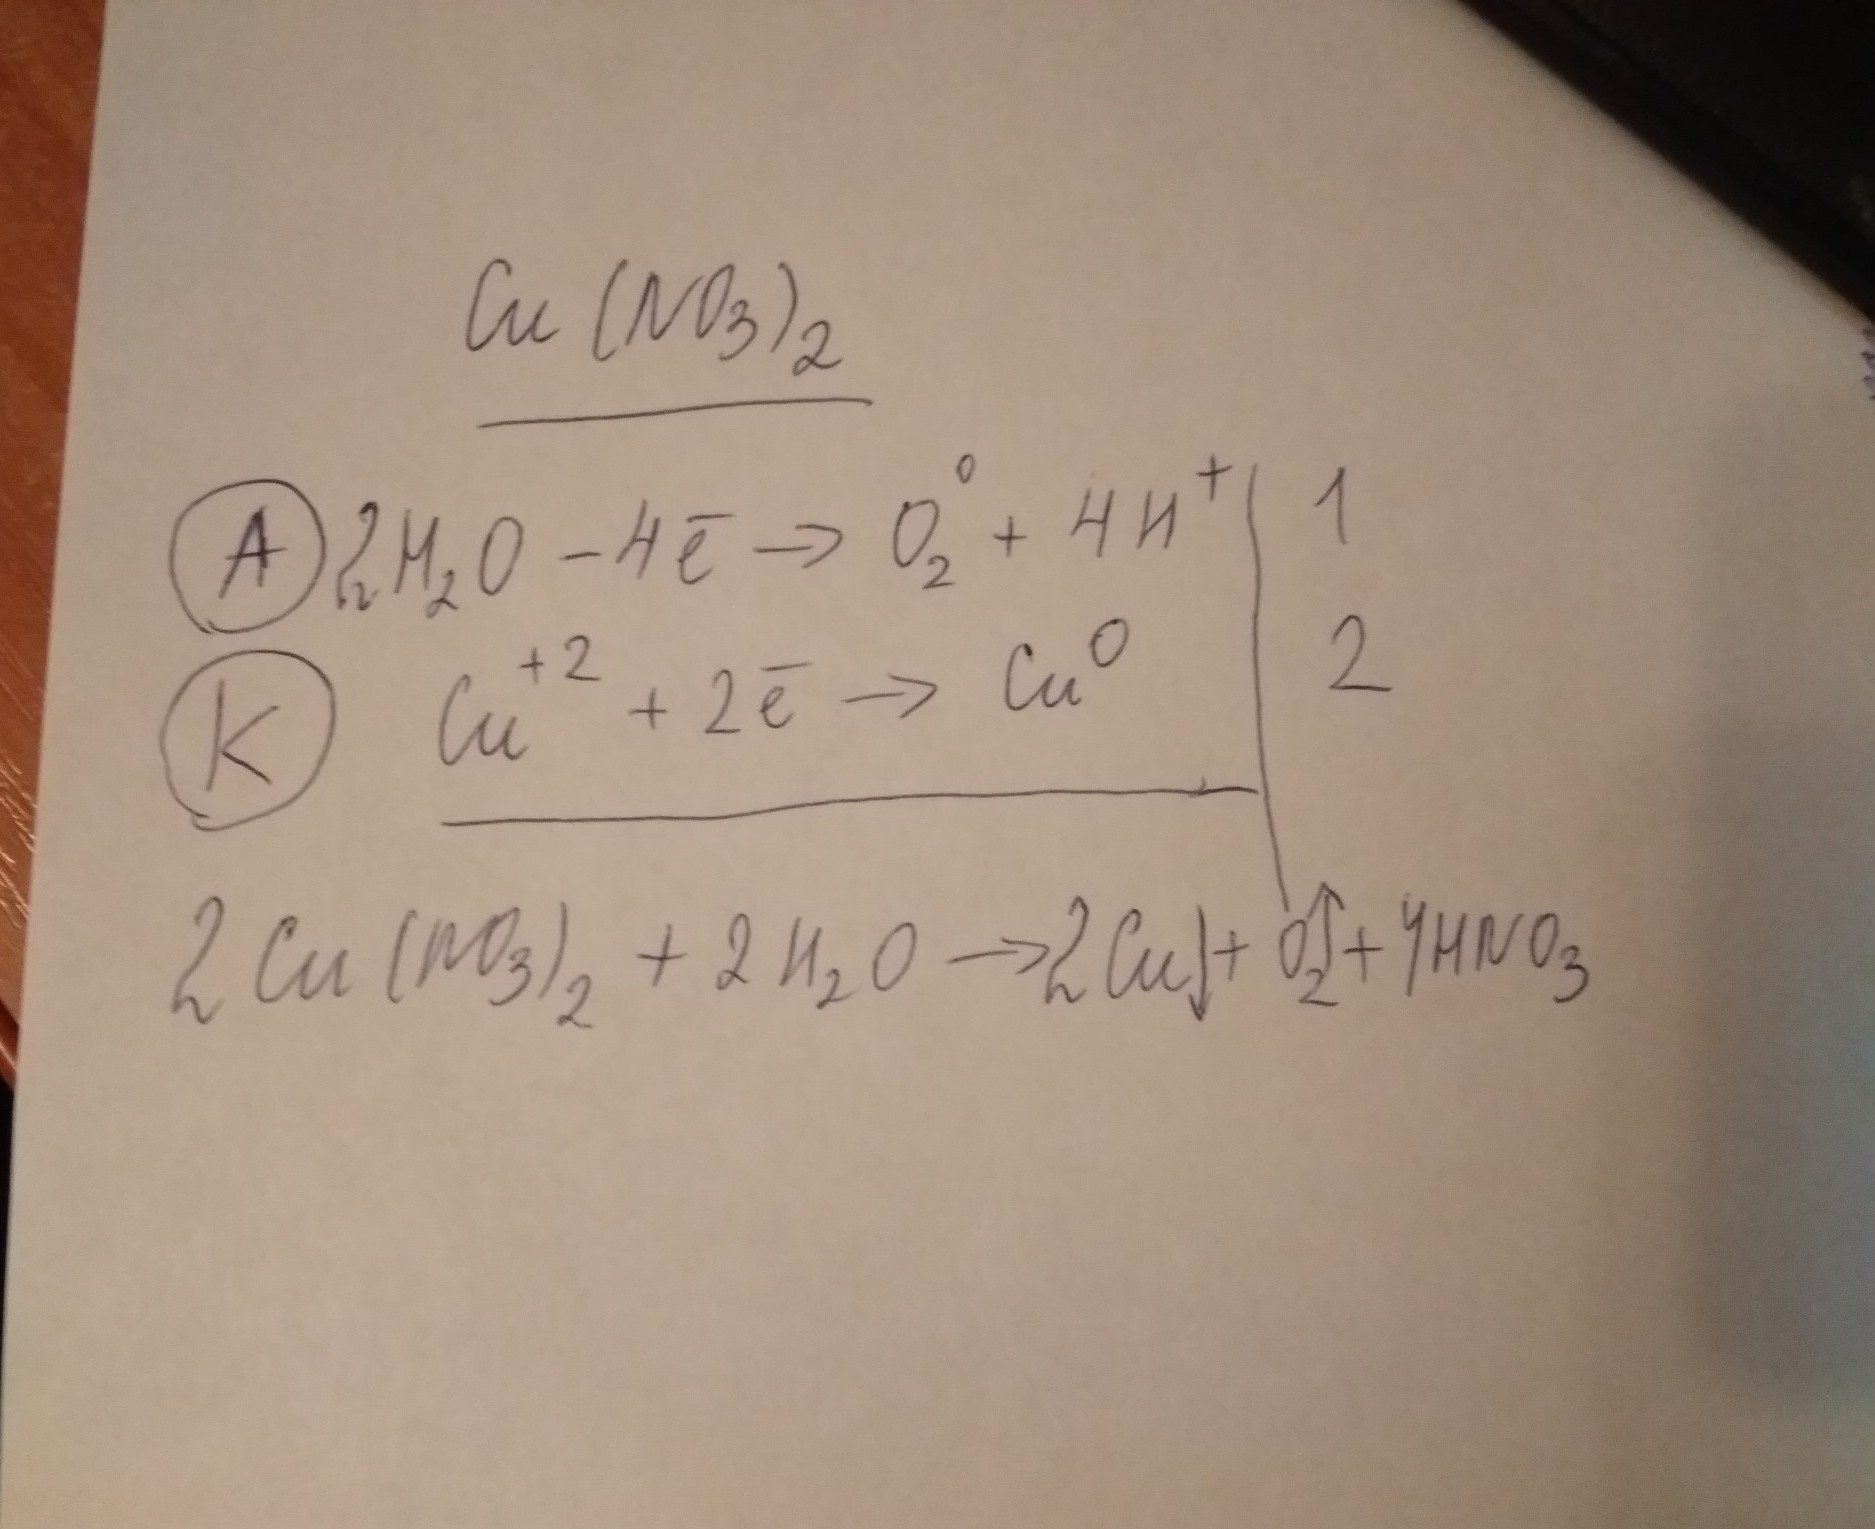 Cu(NO₃)₂
A 2H₂O - 4ē → O₂⁰ + 4H⁺ | 1
K Cu⁺² + 2ē → Cu⁰ | 2
2Cu(NO₃)₂ + 2H₂O → 2Cu↓ + O₂↑ + 4HNO₃